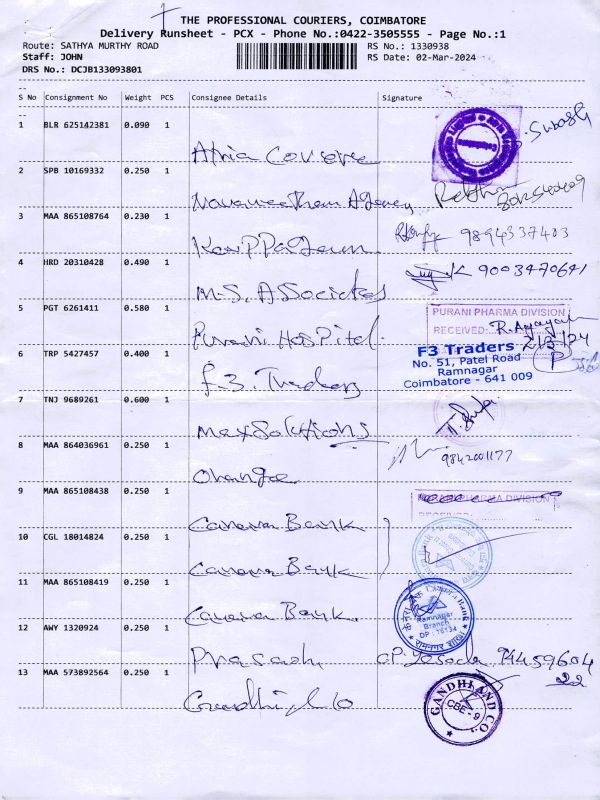 THE PROFESSIONAL COURIERS, COIMBATORE
Delivery Runsheet - PCX - Phone No.:0422-3505555 - Page No.:1
Route: SATHYA MURTHY ROAD RS No.: 1330938
Staff: JOHN RS Date: 02-Mar-2024
DRS No.: DCJB133093801
S No Consignment No Weight PCS Consignee Details Signature
1 BLR 625142381 0.090 1
2 SPB 10169332 0.250 1
Agency
3 MAA 865108764 0.230 1
9894337403
4 HRD 20310428 0.490 1
M.S. Associates 9003470641
5 PGT 6261411 0.580 1
PURANI PHARMA DIVISION
RECEIVED:
Purani Hospital 2/3/24
6 TRP 5427457 0.400 1
F3 Traders
No. 51, Patel Road
Ramnagar
Coimbatore - 641 009
F3. Traders
7 TNJ 9689261 0.600 1
Max Solutions
8 MAA 864036961 0.250 1
9842001177
9 MAA 865108438 0.250 1
PHARMA DIVISION
RECEIVED:
Canara Bank
10 CGL 18014824 0.250 1
Canara Bank
11 MAA 865108419 0.250 1
Canara Bank
Canara Bank
Ramnagar
Branch
DP:
12 AWY 1320924 0.250 1
Prasadh
13 MAA 573892564 0.250 1
Gandhi & Co
GANDHI AND CO.
CBE - 9